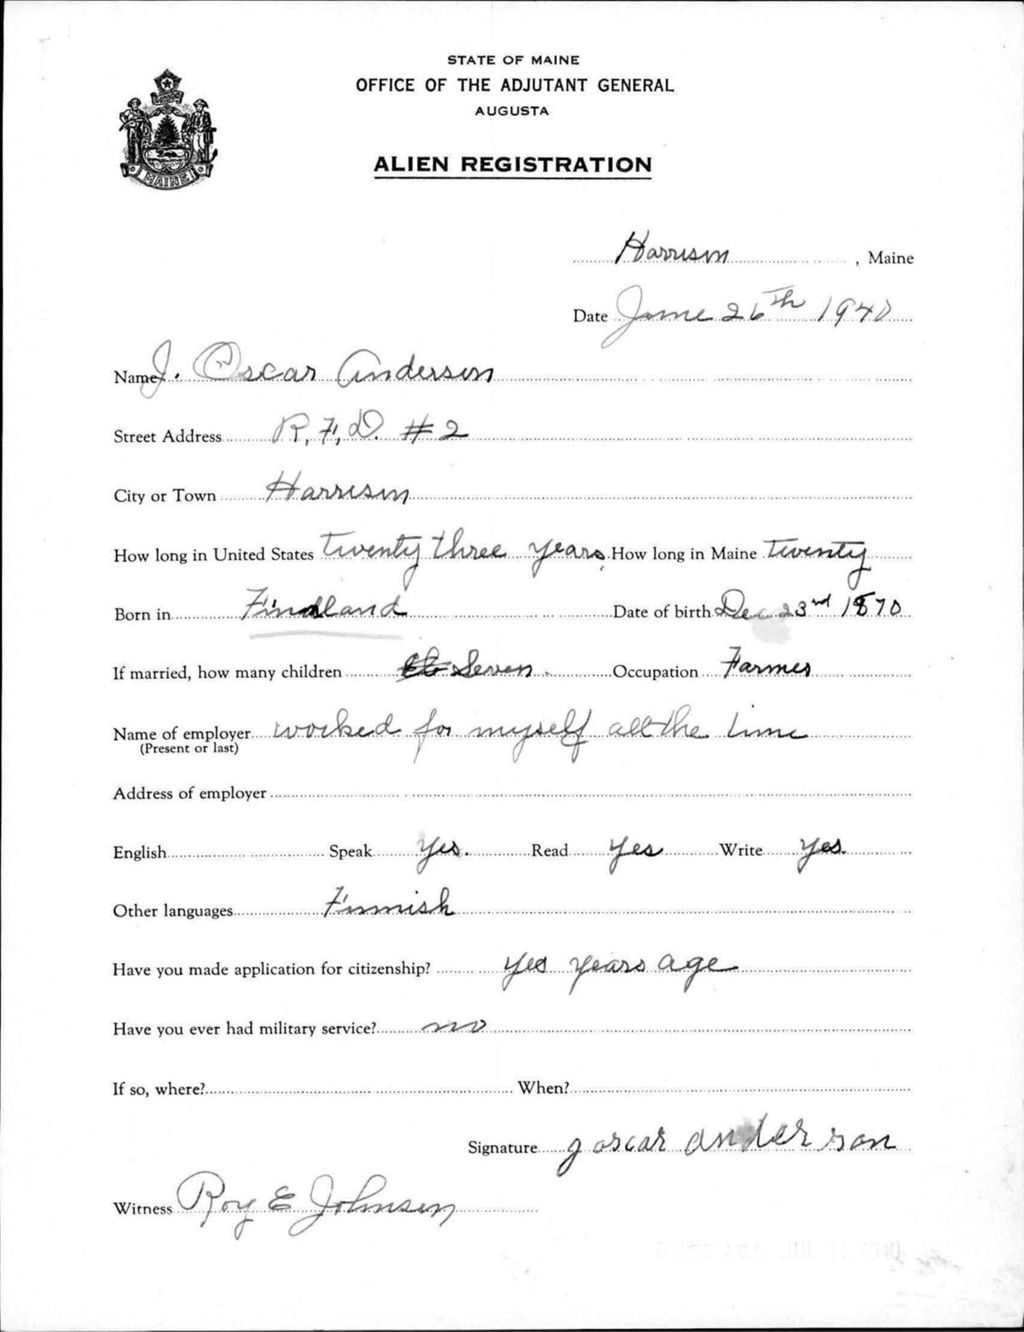 STATE OF MAINE
OFFICE OF THE ADJUTANT GENERAL
AUGUSTA
ALIEN REGISTRATION
MAINE
Harrison, Maine
Date June 26th 1940
Name J. Oscar Anderson
Street Address R.F.D. #2
City or Town Harrison
How long in United States twenty three years How long in Maine twenty
Born in Findland Date of birth Dec 23rd 1870
If married, how many children Seven. Occupation Farmer
Name of employer worked for myself all the time
(Present or last)
Address of employer
English Speak yes. Read yes Write yes.
Other languages Finnish
Have you made application for citizenship? yes years age
Have you ever had military service? no
If so, where? When?
Signature J oscar anderson
Witness Roy E Johnson